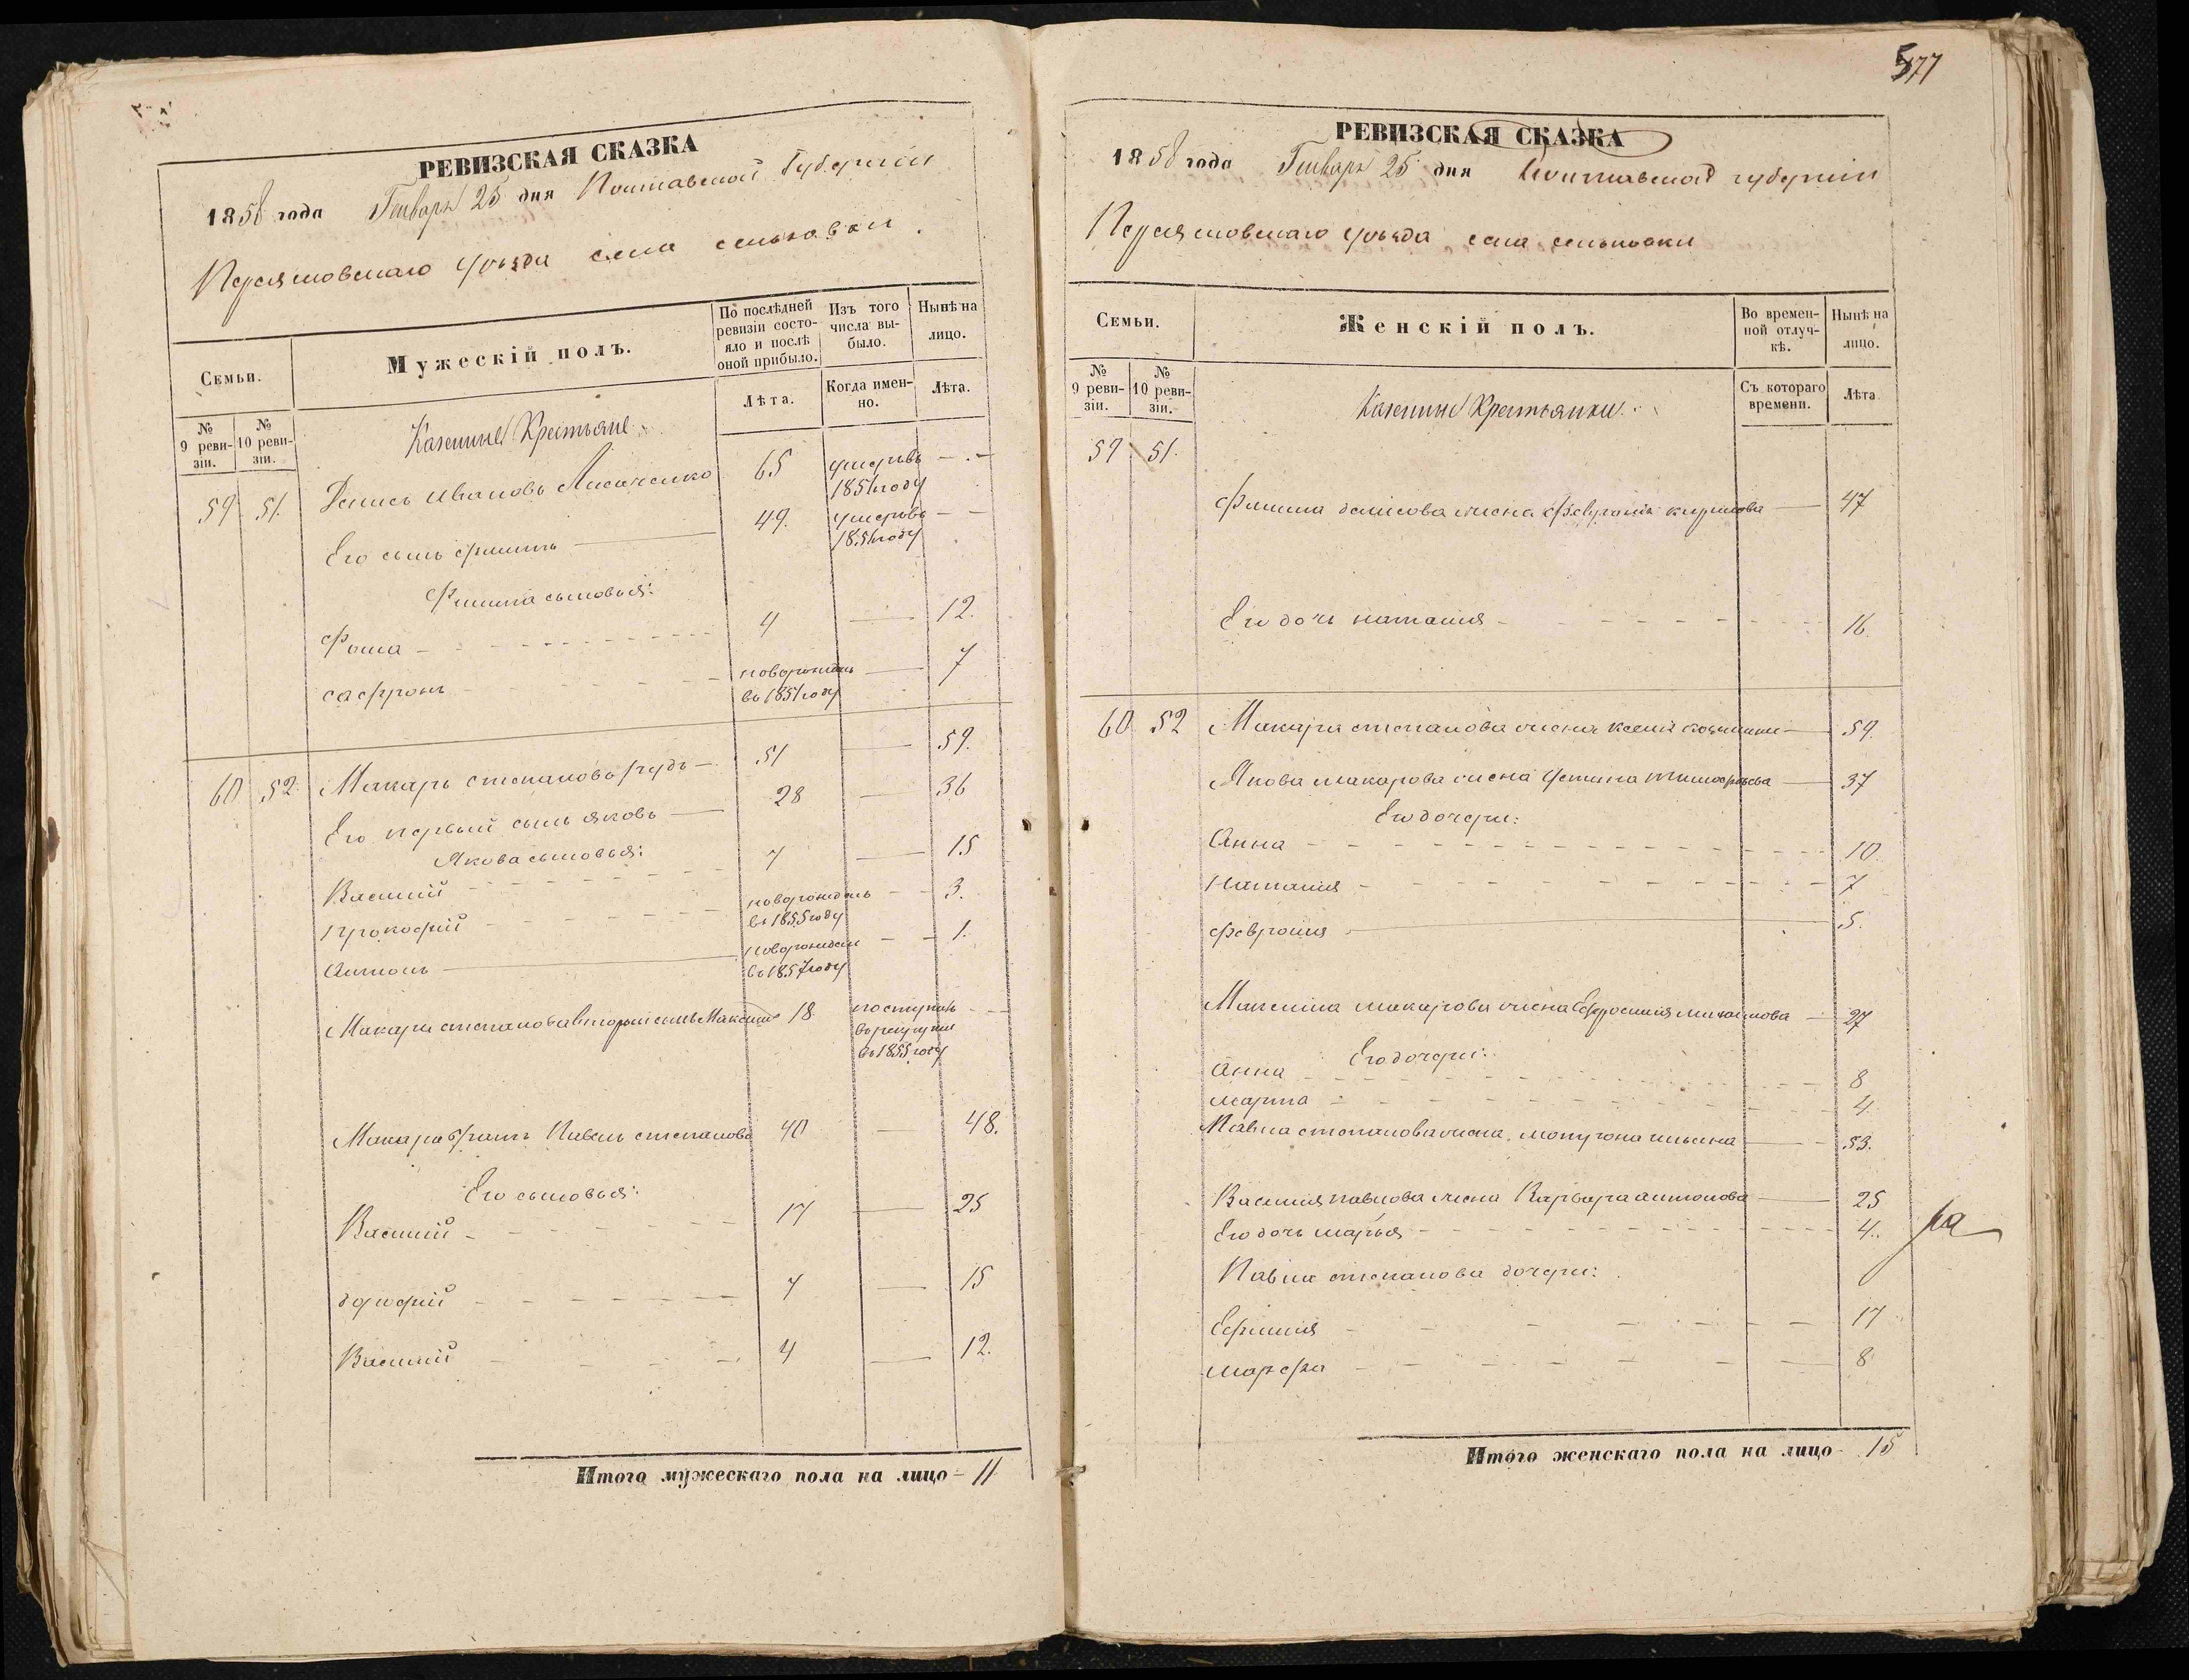 РЕВИЗСКАЯ СКАЗКА
1858 года Генваря 25 дня Полтавской Губернии
Переясловскаго уѣзда села сеньковки
Семьи.
Мужескій полъ.
По послѣдней ревизіи состояло и послѣ оной прибыло.
Изъ того числа выбыло.
Нынѣ на лицо.
№ 9 ревизіи.
№ 10 ревизіи.
Казенные Крестьяне
Лѣта.
Когда именно.
Лѣта.
59 51. Денисъ Ивановъ 65 умеръ въ 1851 году — . —
Его сынъ филипъ 49. умеръ въ 1851 году — —
Филипа сыновья:
Фома 4 — 12.
сафронъ новорожденъ въ 1851 году — 7
60 52. Макаръ степановъ рудь — 51 — 59.
Его первый сынъ яковъ — 28 — 36
Якова сыновья:
Василий 7 — 15
прокофий новорожденъ въ 1855 году — 3.
Антонъ новорожденъ въ 1857 году — 1.
Макара степанова вторый сынъ Максимъ 18. поступилъ въ рекруты въ 1855 году — —
Макара братъ Павелъ степановъ 40 — 48.
Его сыновья:
Василий 17 — 25
7 — 15
Василий 4 — 12.
Итого мужескаго пола на лицо — 11
577
РЕВИЗСКАЯ СКАЗКА
1858 года Генваря 25 дня Полтавской губернии
Переясловскаго уѣзда села сеньковки
Семьи.
Женскій полъ.
Во временной отлучкѣ.
Нынѣ на лицо.
№ 9 ревизіи.
№ 10 ревизіи.
Казенные Крестьянки.
Съ котораго времени.
Лѣта.
59 51.
Филипа денисова жена феврония кирилова — 47
Его дочь наталия 16.
60 52 Макара степанова жена ксения — 59.
Якова макарова жена Устина тимофеева — 37
Его дочери:
Анна 10.
Наталия 7
феврония 5.
Максима макарова жена Ефросиния михайлова — 27
Его дочери:
Анна 8
марфа 4.
Павла степанова жена, ильина — 53.
Василия павлова жена Варвара антонова — 25
Его дочь марья 4.
Павла степанова дочери:
Ефимия 17
марфа 8
Итого женскаго пола на лицо — 15